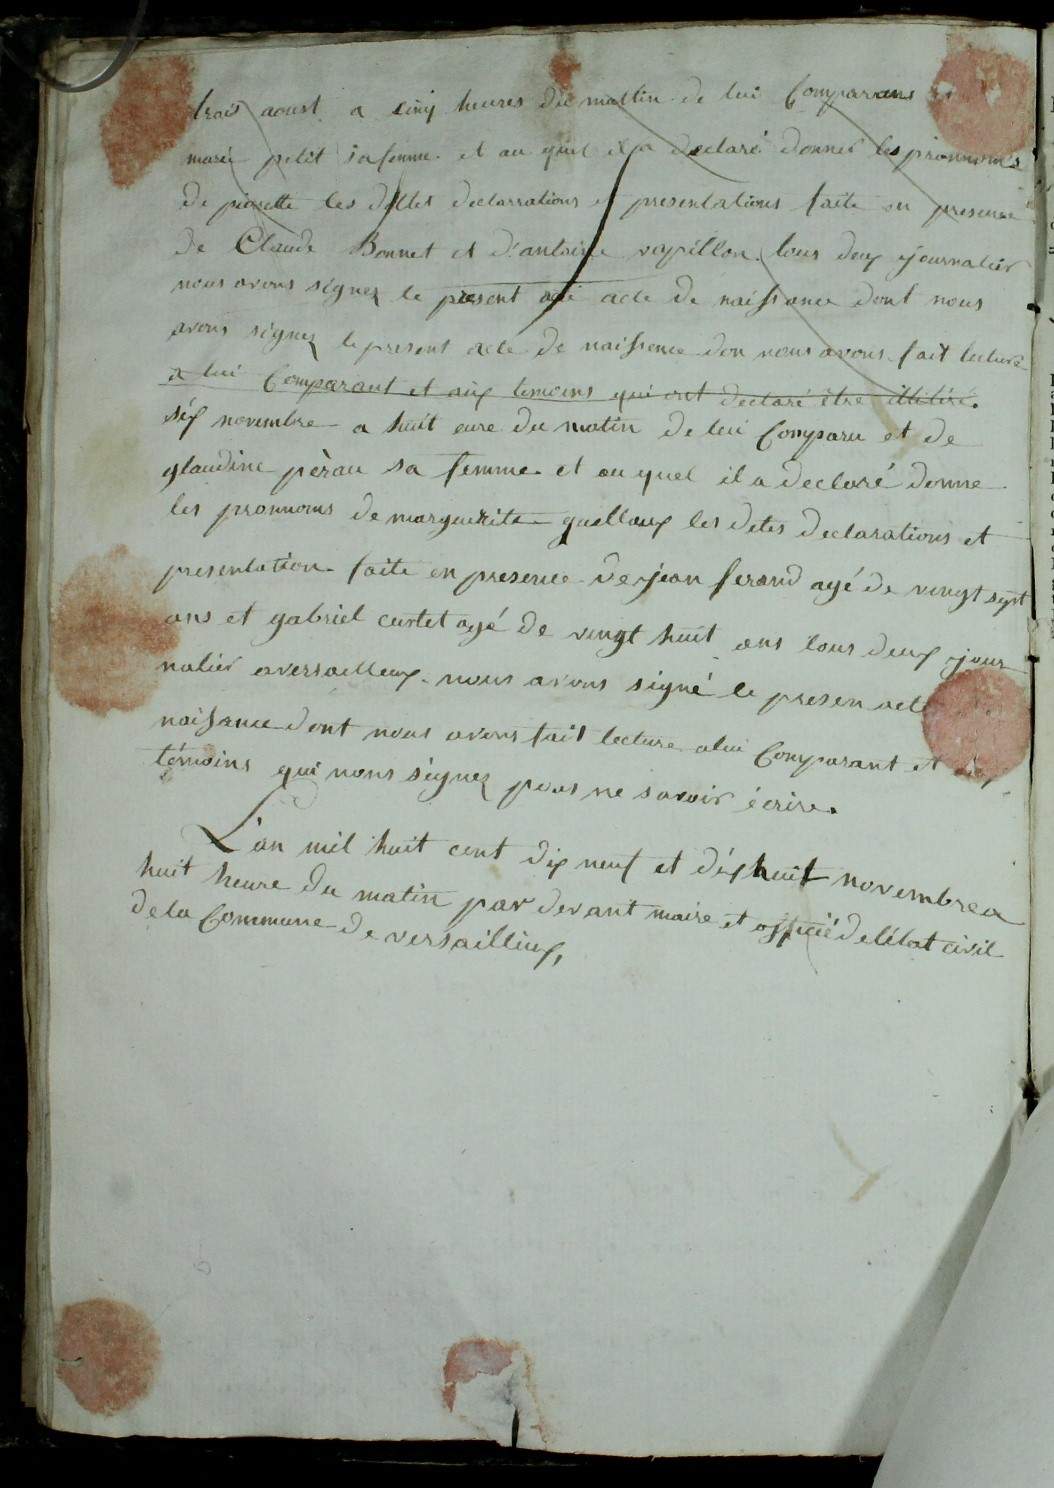 trois aoust a cinq heures du mattin de lui Comparans et
marie petit sa femme et au quel il a declaré donner les pronnoms
de pierrette les dittes declarrations et presentations faite en presence
de Claude Bonnet et d'antoine vapillon tous deux journalier
nous avons signez le present acte de naissance dont nous
avons signez le present acte de naissence don nous avons fait lecture
a lui Comparant et aux temoins qui ont declaré être illitéré.
six novembre a huit eure du matin de lui Comparu et de
glaudine pèrau sa femme et au quel il a declaré donne
les pronnoms de marguerite guellaux les detes declarations et
presentation faite en presence de jean ferand agé de vingt sept
ans et gabriel curtet agé de vingt huit ans tous deux jour
nalier aversailleux nous avons signé le presen acte
naissance dont nous avons fait lecture a lui Comparant et
témoins qui nons signez pour ne savoir écrire.
L'an mil huit cent dix neuf et dix huit novembre a
huit heure du matin par devant maire et officié de létat civil
de la Commune de versaillieux,